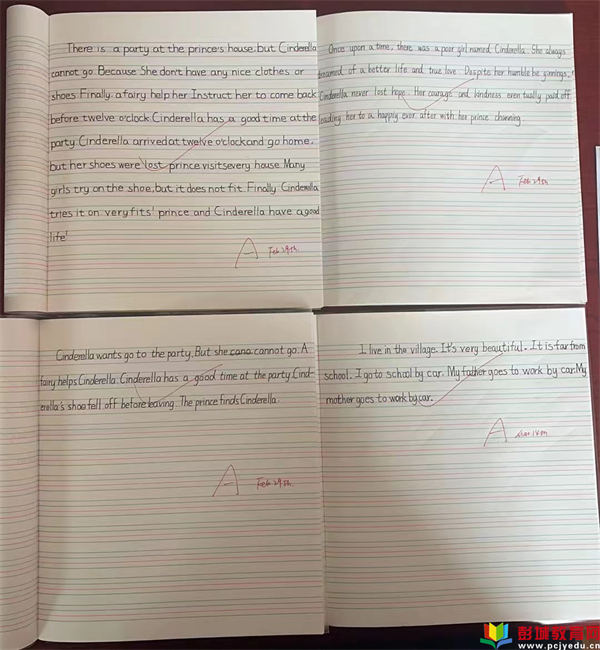 There is a party at the prince's house, but Cinderella
cannot go. Because She don't have any nice clothes or
shoes. Finally. a fairy help her. Instruct her to come back
before twelve o'clock. Cinderella has a good time at the
party. Cinderella arrived at twelve o'clock and go home,
but her shoes were lost. prince visits every house. Many
girls try on the shoe, but it does not fit. Finally Cinderella
tries it on very fits! prince and Cinderella have a good
life!
A Feb 29th.
Once upon a time, there was a poor girl named Cinderella. She always
dreamed of a better life and true love. Despite her humble beginnings,
Cinderella never lost hope. Her courage and kindness eventually paid off,
leading her to a happily ever after with her prince charming.
A Feb 29th
Cinderella wants go to the party, But she cannot go. A
fairy helps Cinderella. Cinderella has a good time at the party. Cind-
erella's shoe fell off before leaving. The prince finds Cinderella.
A Feb 29th.
I live in the village. It's very beautiful. It is far from
school. I go to school by car. My father goes to work by car. My
mother goes to work by car.
A
彭城教育网
www.pcjyedu.cn